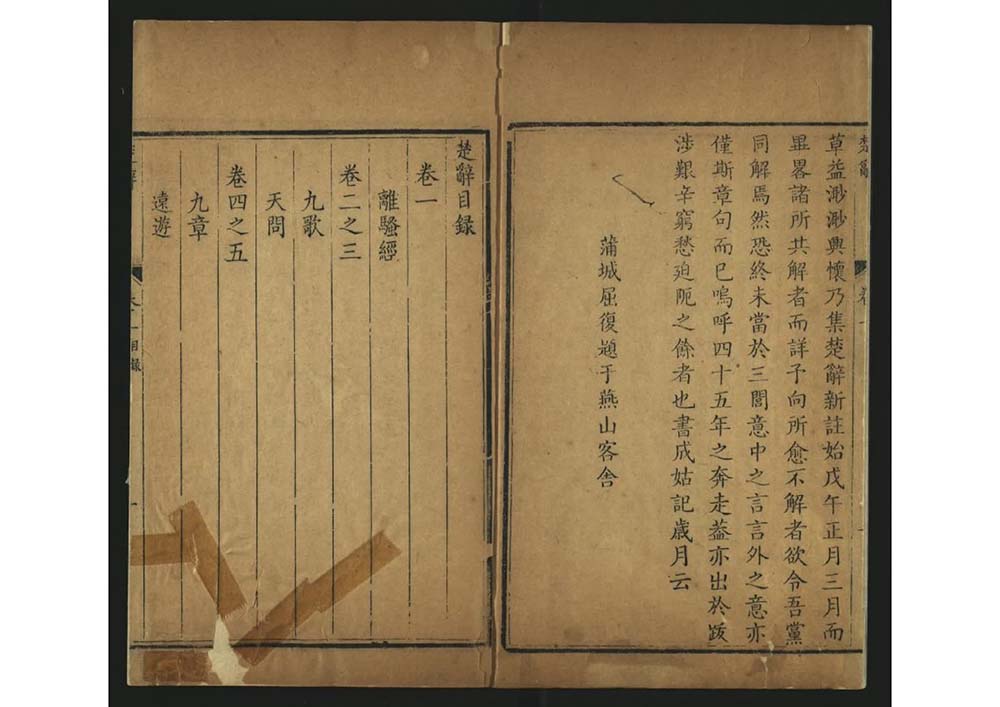 草益渺渺興懷乃集楚辭新註始戊午正月三月而
畢畧諸所共解者而詳予向所愈不解者欲令吾黨
同解焉然恐終未當於三閭意中之言言外之意亦
僅斯章句而已嗚呼四十五年之奔走葢亦出於跋
涉艱辛窮愁迫阨之餘者也書成姑記歲月云
蒲城屈復題于燕山客舍
楚辭目録
卷一
離騷經
卷二之三
九歌
天問
卷四之五
九章
遠遊